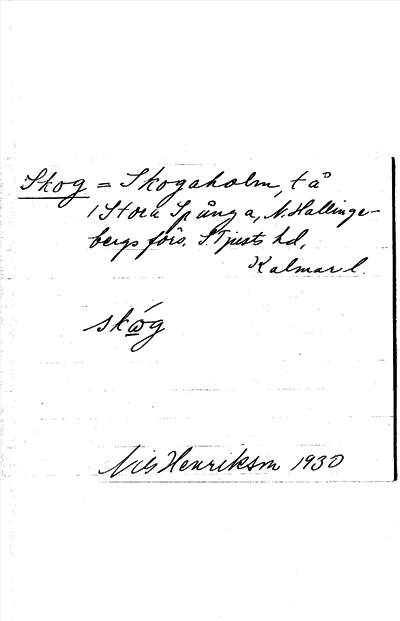 Skog = Skogaholm, t å
1 Stora Spånga, N. Hallinge-
bergs förs. S. Tjusts hd,
Kalmar l.
skóg
Nils Henrikson 1930